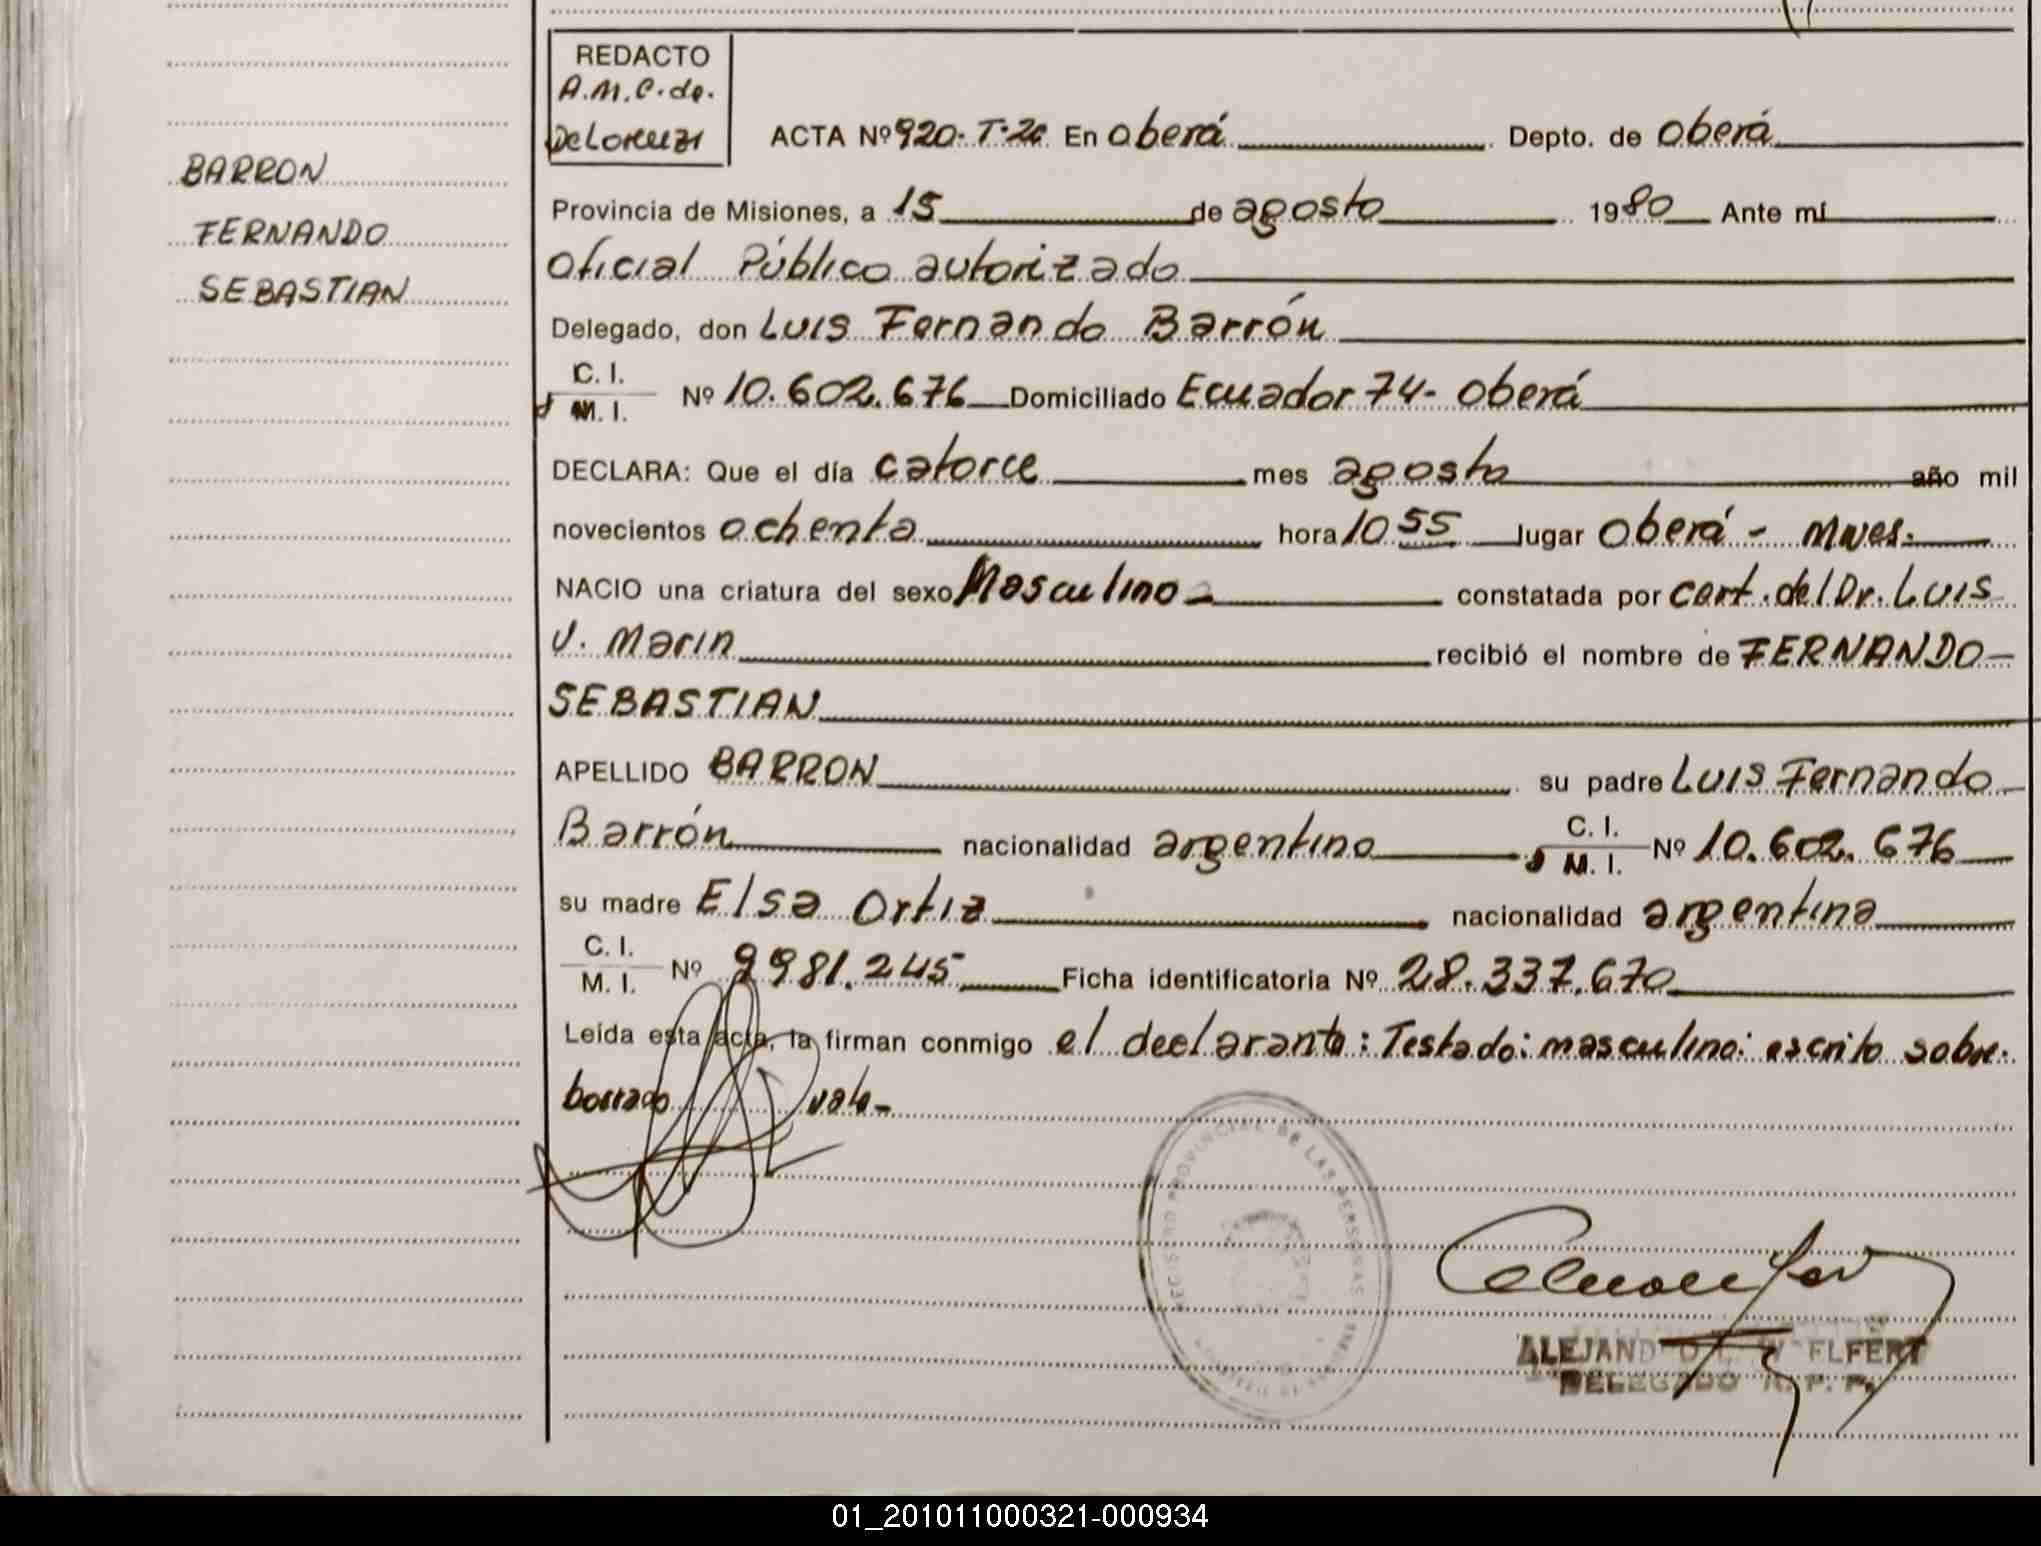 BARRON
FERNANDO
SEBASTIAN
REDACTO
A.M.C. de.
DeLorenzi
ACTA Nº 920- T-2º En Oberá Depto. de Oberá
Provincia de Misiones, a 15 de agosto 1980 Ante mí
Oficial Público autorizado
Delegado, don Luis Fernando Barrón
C. I.
M. I. Nº 10.602.676 Domiciliado Ecuador 74- Oberá
DECLARA: Que el día catorce mes agosto año mil
novecientos ochenta hora 10 55 lugar Oberá - Mnes.
NACIO una criatura del sexo Masculino - constatada por cert. del Dr. Luis
V. Marin recibió el nombre de FERNANDO-
SEBASTIAN
APELLIDO BARRON su padre Luis Fernando
Barrón nacionalidad argentino C. I. M. I. Nº 10.602.676
su madre Elsa Ortiz nacionalidad argentina
C. I. M. I. Nº 9981.245 Ficha identificatoria Nº 28.337.670
Leída esta acta, la firman conmigo el declarante: Testado: masculino: escrito sobre
borrado vale-
REGISTRO PROVINCIAL DE LAS PERSONAS
DELEGADO R. P. P.
01_201011000321-000934